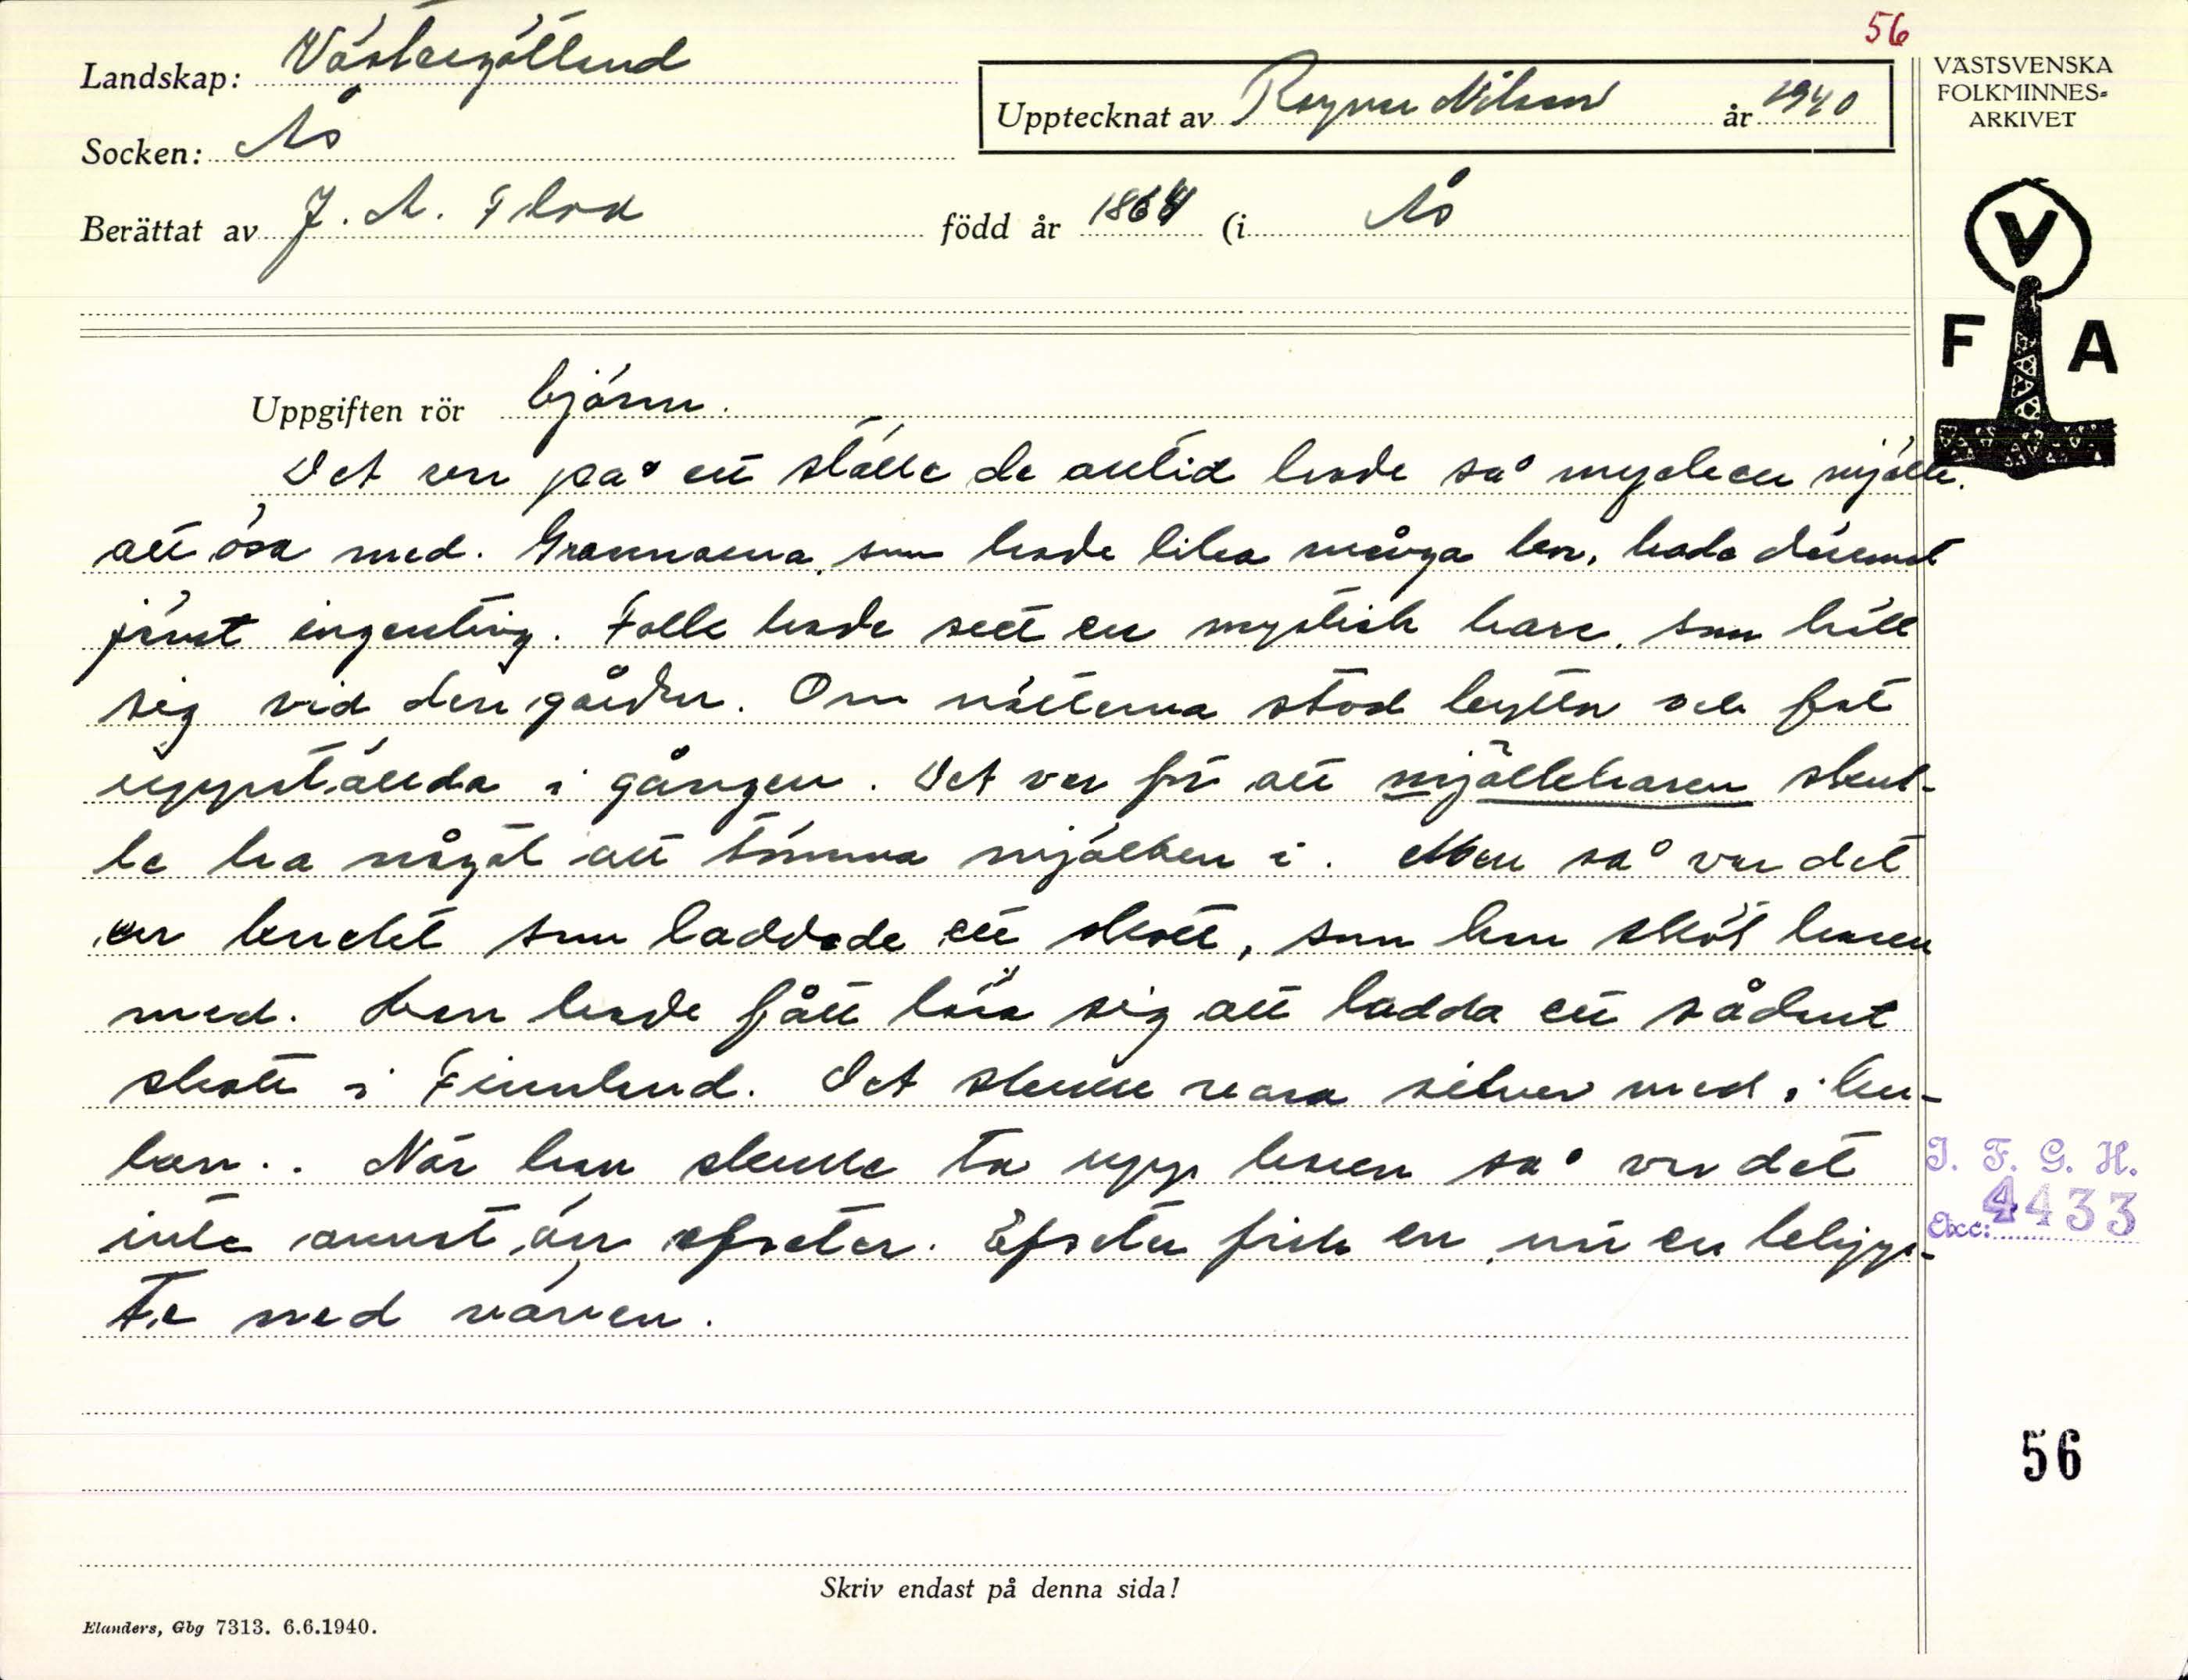 56
Landskap: Västergötland
VÄSTSVENSKA
FOLKMINNES-
ARKIVET
Upptecknat av Ragnar Nilsson år 1940
Socken: Ås
Berättat av J. A. Flod född år 1864 (i Ås
V
F A
Uppgiften rör bjärn.
Det var på ett ställe de alltid hade så mycken mjölk.
att ösa med. Grannarna, som hade lika många kor, hade däremot
jämt ingenting. Folk hade sett en mystisk hare, som höll
sig vid den gården. Om nätterna stod byttor och fat
uppställda i gången. Det var för att mjölkharen skul-
le ha något att tömma mjölken i. Men så var det
en knekt som laddade ett skott, som han sköt haren
med. Han hade fått lära sig att ladda ett sådant
skott i Finnland. Det skulle vara silver med i ku-
lan.. När han skulle ta upp haren så var det
inte annat än efseter. Efseter fick en när en klipp-
te ned väven.
I. F. G. H.
Acc: 4433
56
Skriv endast på denna sida!
Elanders, Gbg 7313. 6.6.1940.